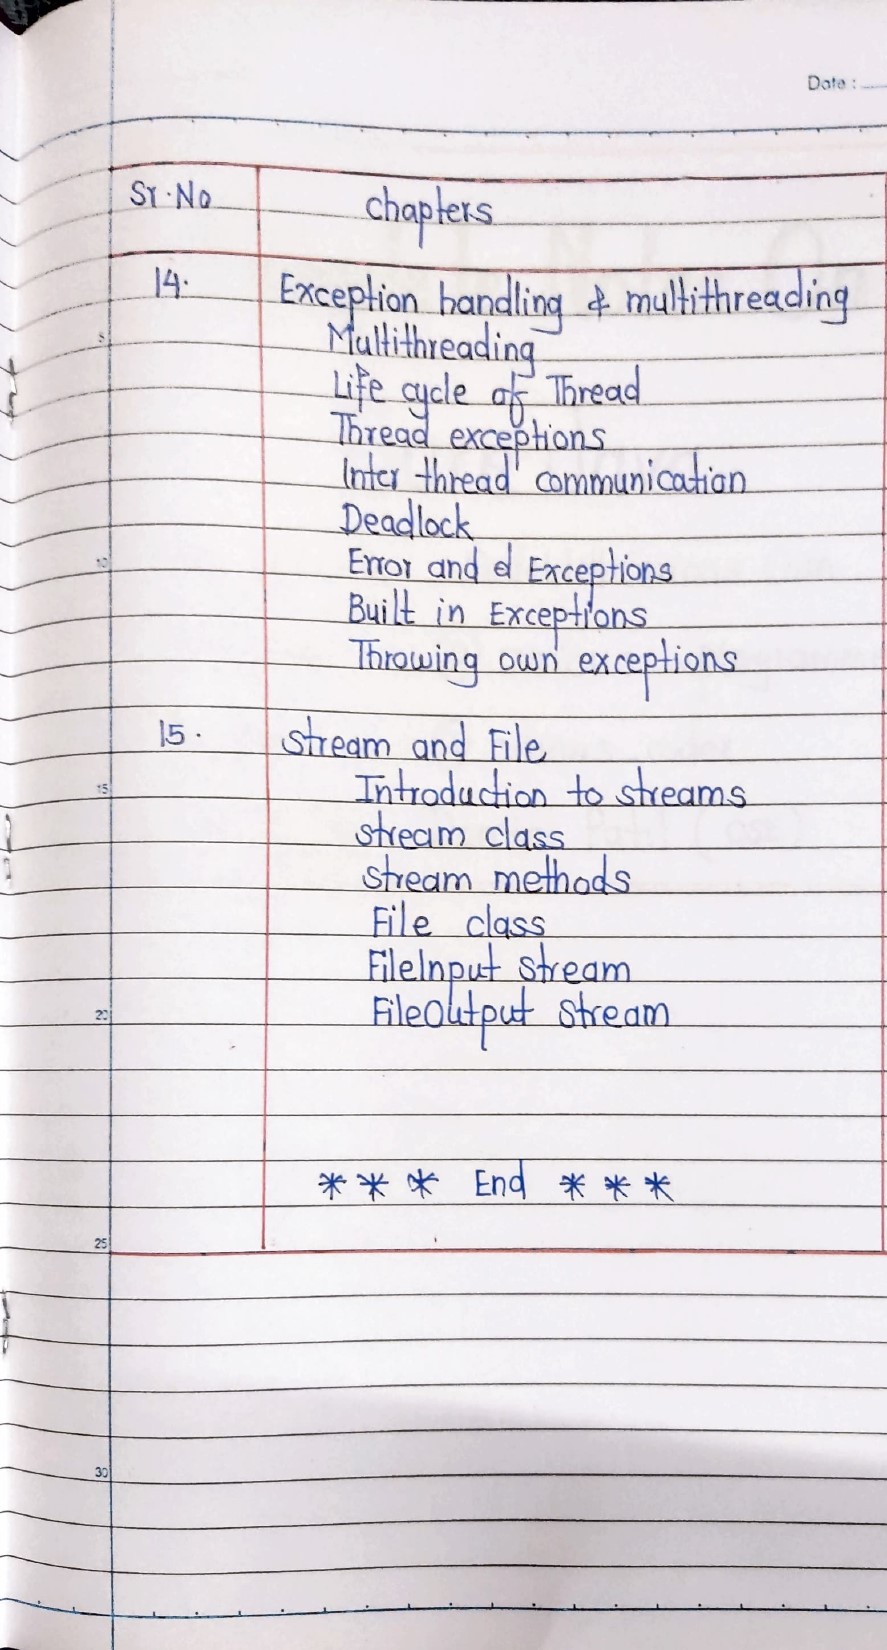 Date :
Sr. No chapters
14. Exception handling & multithreading
5
Multithreading
Life cycle of Thread
Thread exceptions
Inter thread communication
Deadlock
10 Error and d Exceptions
Built in Exceptions
Throwing own exceptions
15. Stream and File
15 Introduction to streams
stream class
stream methods
File class
FileInput stream
20 FileOutput stream
*** End ***
25
30